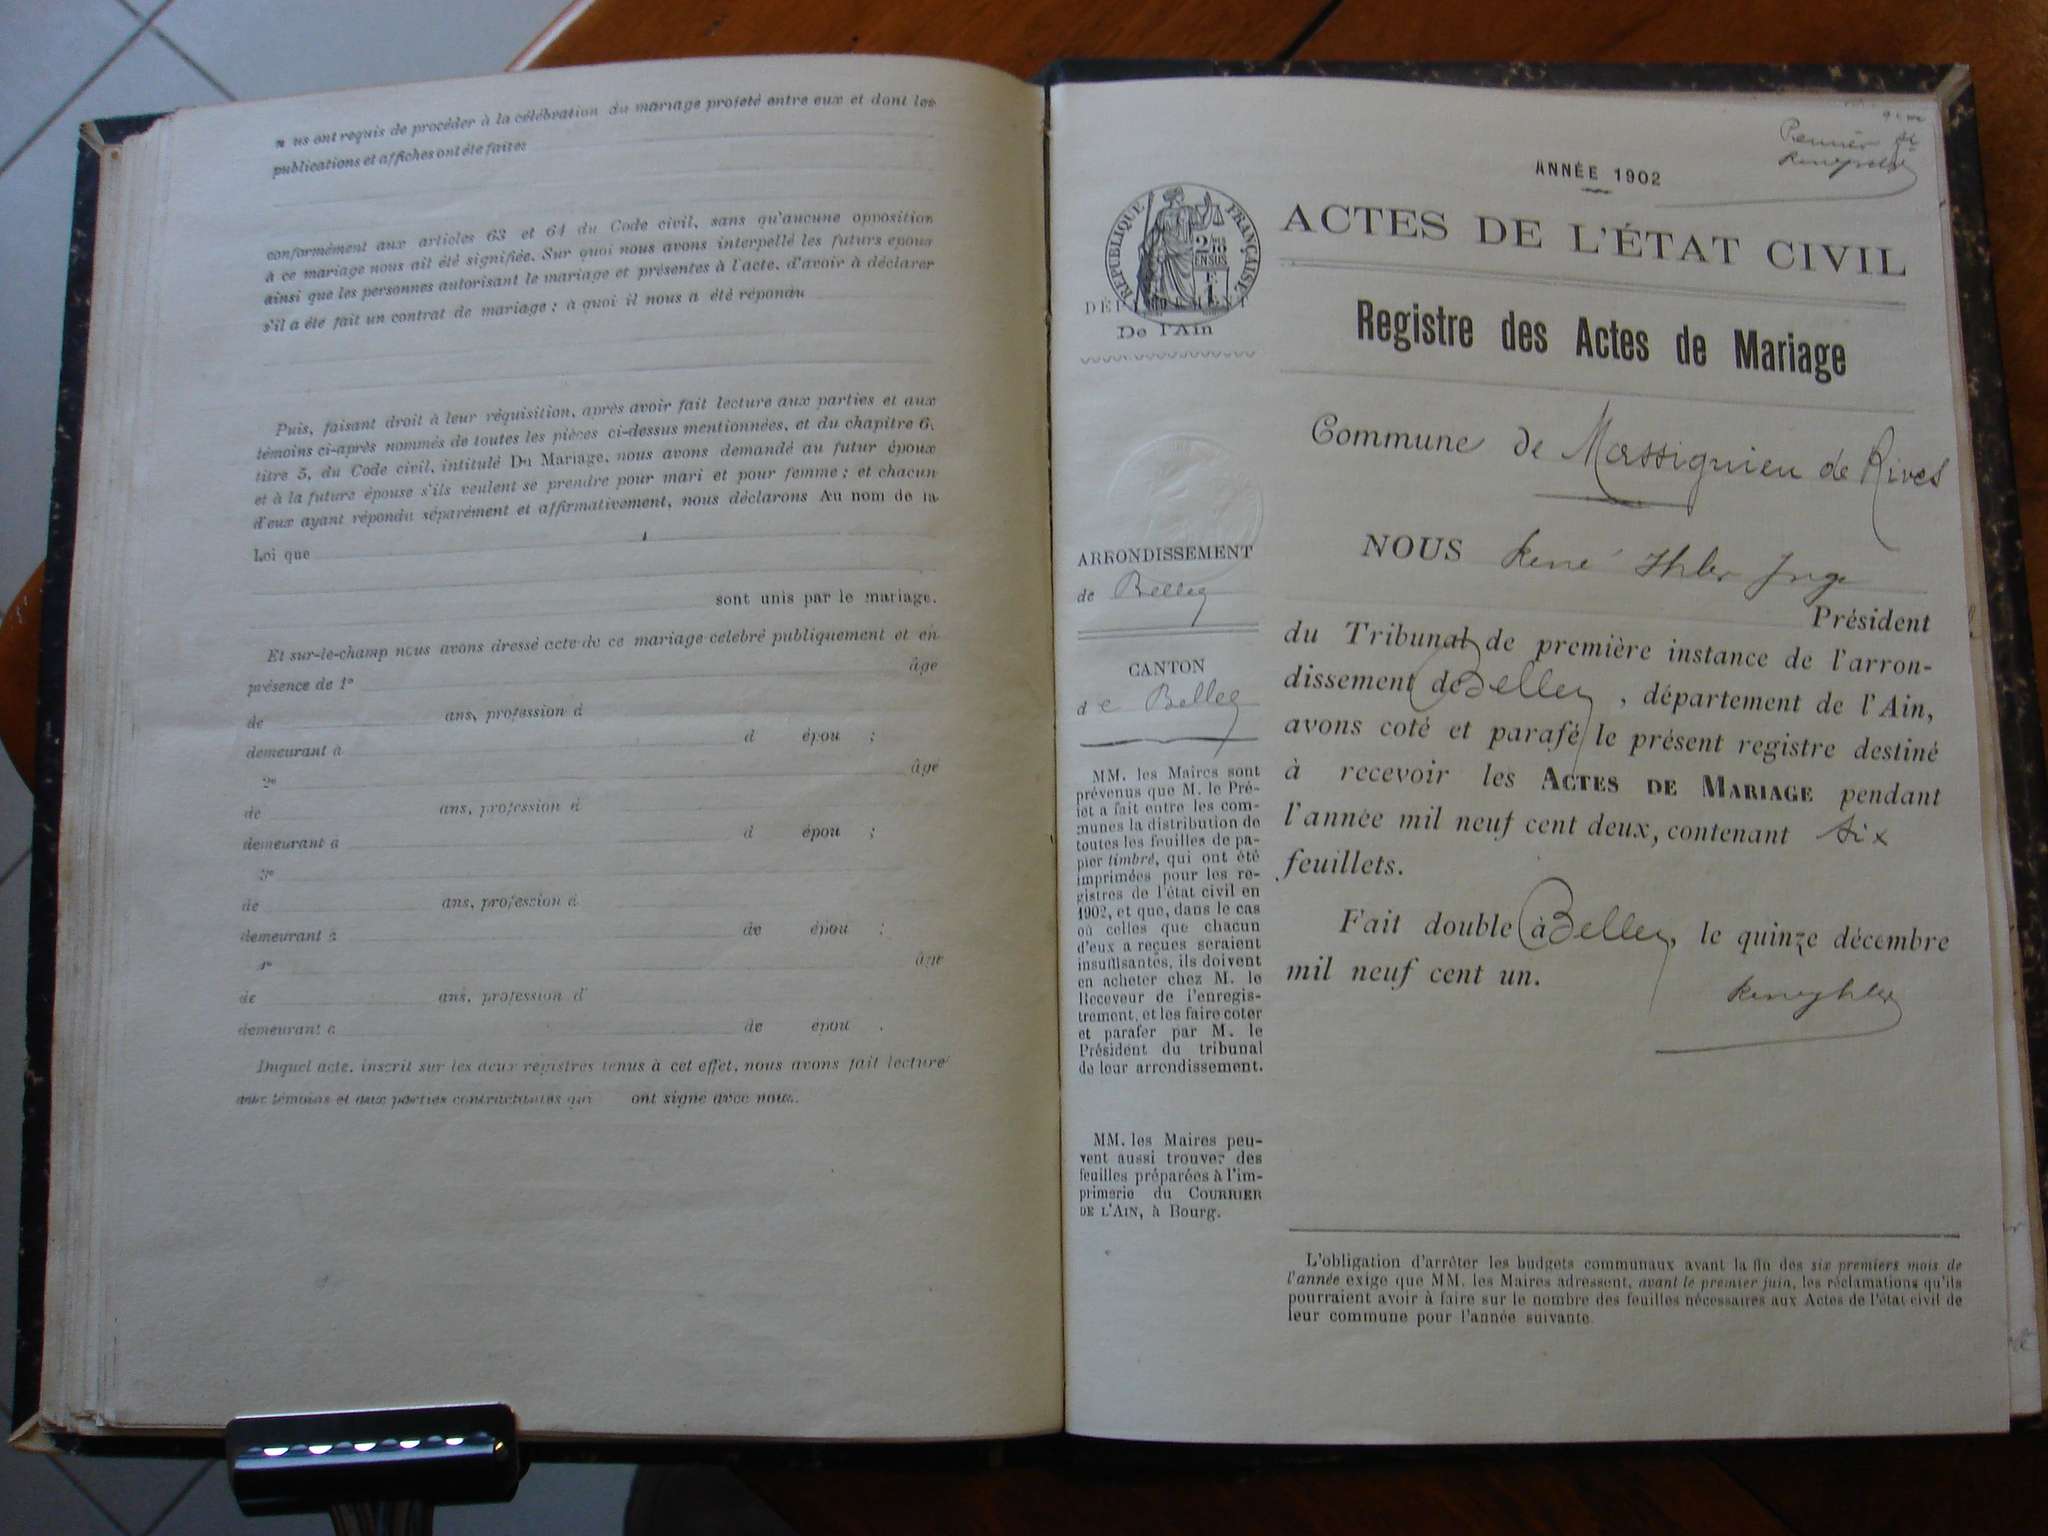 nous ont requis de procéder à la célébration du mariage projeté entre eux et dont les
publications et affiches ont été faites
conformément aux articles 63 et 64 du Code civil, sans qu'aucune opposition
à ce mariage nous ait été signifiée. Sur quoi nous avons interpellé les futurs epoux
ainsi que les personnes autorisant le mariage et présentes à l'acte, d'avoir à déclarer
s'il a été fait un contrat de mariage ; à quoi il nous a été répondu
Puis, faisant droit à leur réquisition, après avoir fait lecture aux parties et aux
témoins ci-après nommés de toutes les pièces ci-dessus mentionnées, et du chapitre 6,
titre 5, du Code civil, intitulé Du Mariage, nous avons demandé au futur époux
et à la future épouse s'ils veulent se prendre pour mari et pour femme ; et chacun
d'eux ayant répondu séparément et affirmativement, nous déclarons Au nom de la
Loi que
sont unis par le mariage.
Et sur-le-champ nous avons dressé acte de ce mariage celebré publiquement et en
présence de 1° âgé
de ans, profession d
demeurant à d épou ;
2° âgé
de ans, profession d
demeurant à d épou ;
3°
de ans, profession d
demeurant à de épou ;
4° âgé
de ans, profession d
demeurant à de épou .
Duquel acte, inscrit sur les deux registres tenus à cet effet, nous avons fait lecture
aux témoins et aux parties contractantes qui ont signé avec nous.
Premier
ANNÉE 1902
ACTES DE L'ÉTAT CIVIL
RÉPUBLIQUE FRANÇAISE
2 10 EN SUS
DÉPARTEMENT
De l'Ain
Registre des Actes de Mariage
Commune de Massignieu de Rives
ARRONDISSEMENT
de Belley
CANTON
de Belley
MM. les Maires sont
prévenus que M. le Pré-
fet a fait entre les com-
munes la distribution de
toutes les feuilles de pa-
pier timbré, qui ont été
imprimées pour les re-
gistres de l'état civil en
1902, et que, dans le cas
où celles que chacun
d'eux a reçues seraient
insuffisantes, ils doivent
en acheter chez M. le
Receveur de l'enregis-
trement, et les faire coter
et parafer par M. le
Président du tribunal
de leur arrondissement.
MM. les Maires peu-
vent aussi trouver des
feuilles préparées à l'im-
primerie du COURRIER
DE L'AIN, à Bourg.
NOUS René Ihler Juge
Président
du Tribunal de première instance de l'arron-
dissement de Belley, département de l'Ain,
avons coté et parafé le présent registre destiné
à recevoir les ACTES DE MARIAGE pendant
l'année mil neuf cent deux, contenant six
feuillets.
Fait double à Belley, le quinze décembre
mil neuf cent un.
René Ihler
L'obligation d'arrêter les budgets communaux avant la fin des six premiers mois de
l'année exige que MM. les Maires adressent, avant le premier juin, les réclamations qu'ils
pourraient avoir à faire sur le nombre des feuilles nécessaires aux Actes de l'état civil de
leur commune pour l'année suivante.